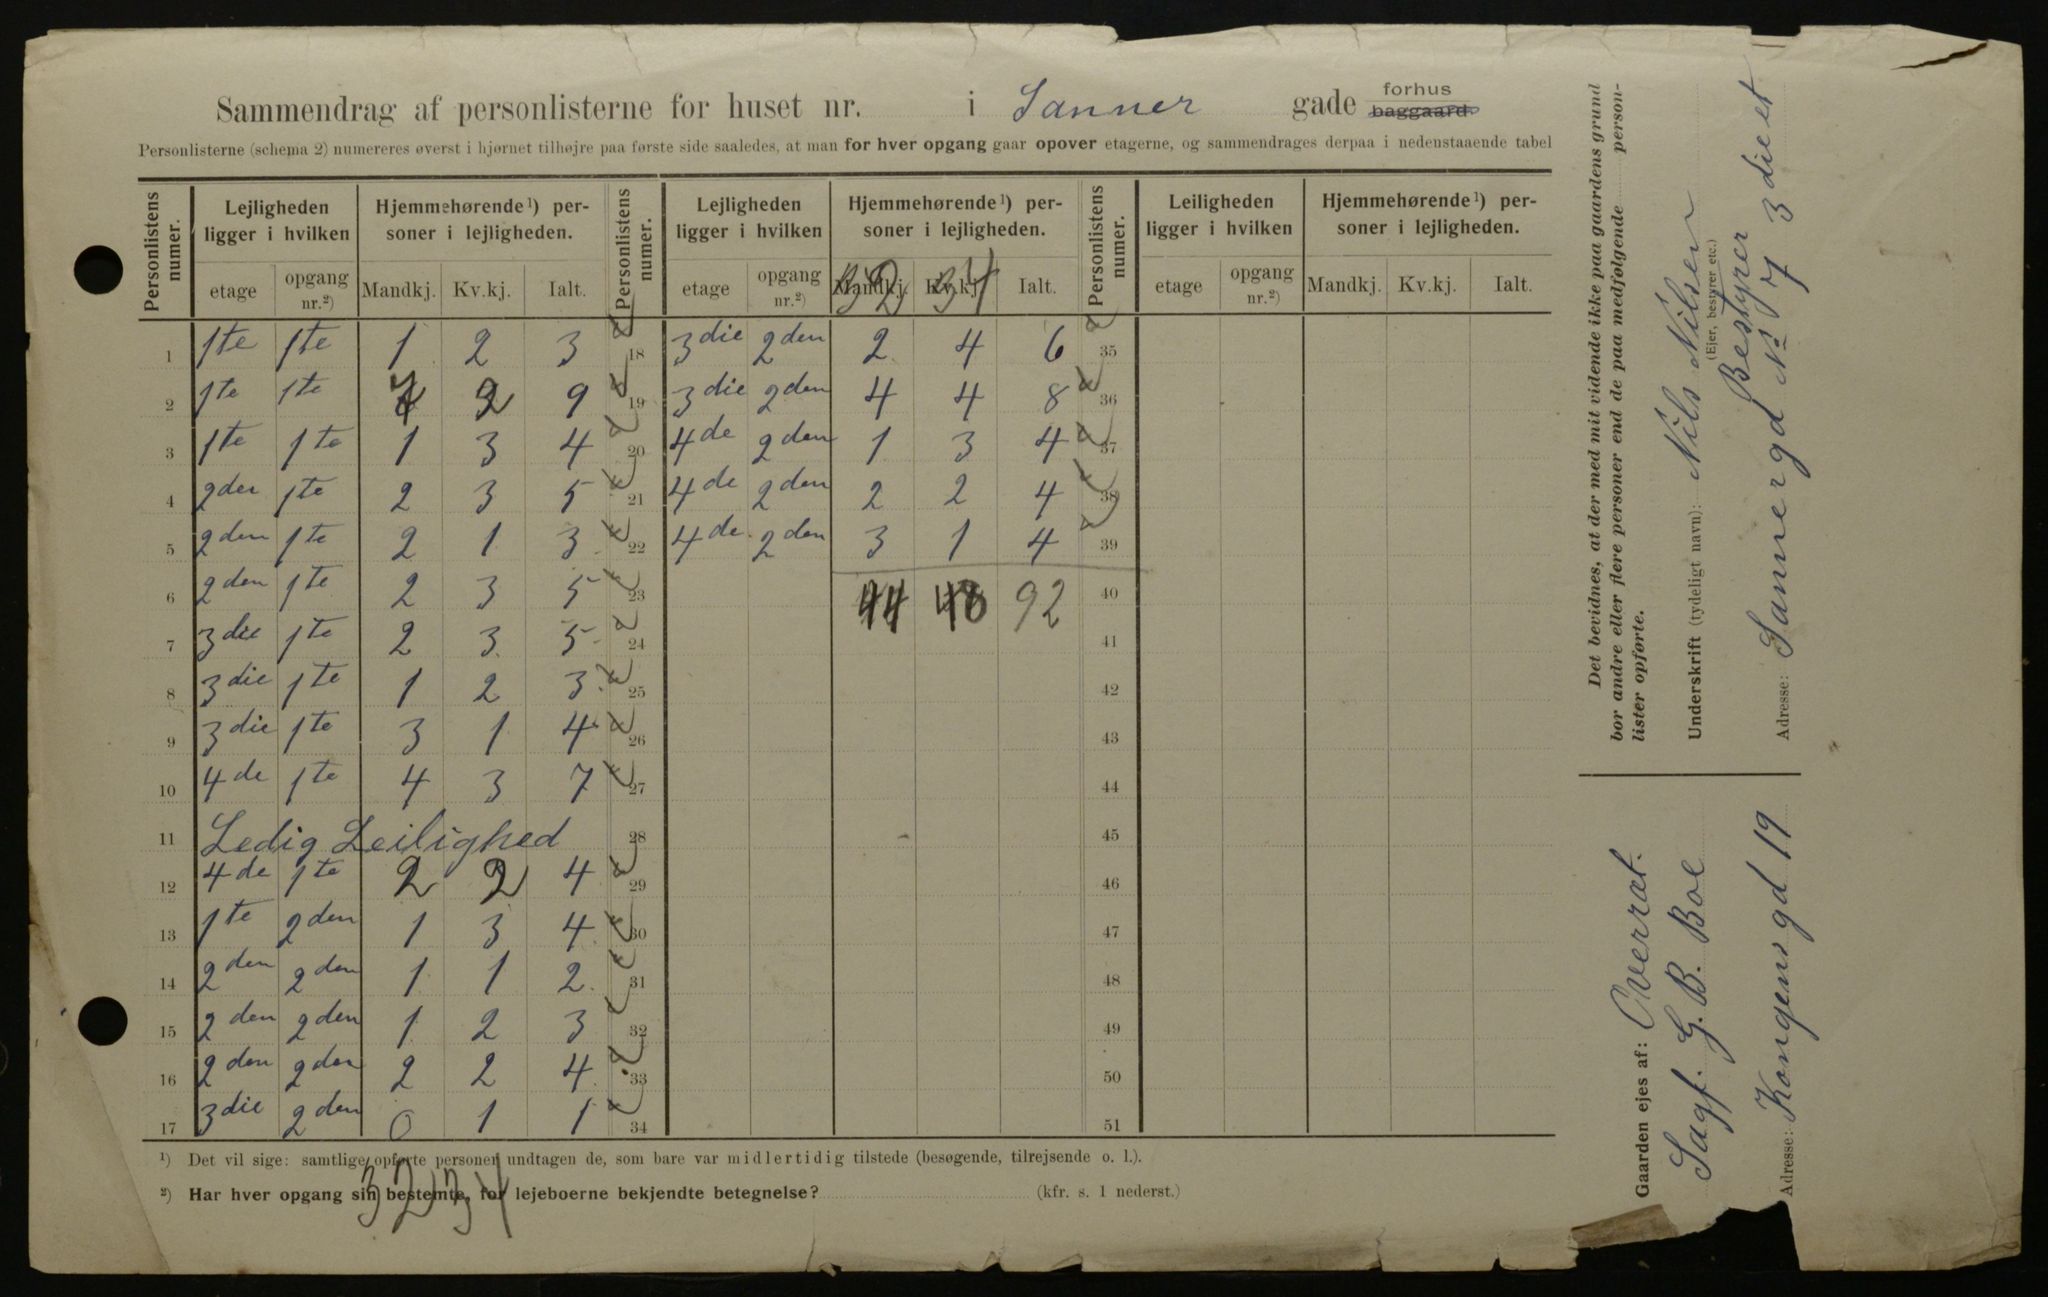 Sammendrag af personlisterne for huset nr. i Sanner gade forhus baggaard.
Personlisterne (schema 2) numereres øverst i hjørnet tilhøjre paa første side saaledes, at man for hver opgang gaar opover etagerne, og sammendrages derpaa i nedenstaaende tabel
Personlistens numer.
Lejligheden ligger i hvilken
Hjemmehørende ¹) personer i lejligheden.
Personlistens numer.
Lejligheden ligger i hvilken
Hjemmehørende ¹) personer i lejligheden.
Personlistens numer.
Leiligheden ligger i hvilken
Hjemmehørende ¹) personer i lejligheden.
etage opgang nr.²) Mandkj. Kv.kj. Ialt. etage opgang nr.²) Mandkj. Kv.kj. Ialt. etage opgang nr.²) Mandkj. Kv.kj. Ialt.
32 34
1 1te 1te 1 2 3 18 3die 2den 2 4 6 35
2 1te 1te 7 2 9 19 3die 2den 4 4 8 36
3 1te 1te 1 3 4 20 4de 2den 1 3 4 37
4 2den 1te 2 3 5 21 4de 2den 2 2 4 38
5 2den 1te 2 1 3 22 4de 2den 3 1 4 39
6 2den 1te 2 3 5 23 44 48 92 40
7 3die 1te 2 3 5 24 41
8 3die 1te 1 2 3 25 42
9 3die 1te 3 1 4 26 43
10 4de 1te 4 3 7 27 44
11 Ledig Leilighed 28 45
12 4de 1te 2 2 4 29 46
13 1te 2den 1 3 4 30 47
14 2den 2den 1 1 2 31 48
15 2den 2den 1 2 3 32 49
16 2den 2den 2 2 4 33 50
17 3die 2den 0 1 1 34 51
¹) Det vil sige: samtlige opførte personer undtagen de, som bare var midlertidig tilstede (besøgende, tilrejsende o. l.).
²) Har hver opgang sin bestemte, for lejeboerne bekjendte betegnelse? (kfr. s. 1 nederst.)
32 34
Det bevidnes, at der med mit vidende ikke paa gaardens grund
bor andre eller flere personer end de paa medfølgende personlister
opførte.
Underskrift (tydeligt navn): Nils Nilsen
(Ejer, bestyrer etc.)
Bestyrer
Adresse: Sannergd No 7 3die et
Gaarden ejes af: Overret.
Sagf. G. B. Boe
Adresse: Kongens gd 19